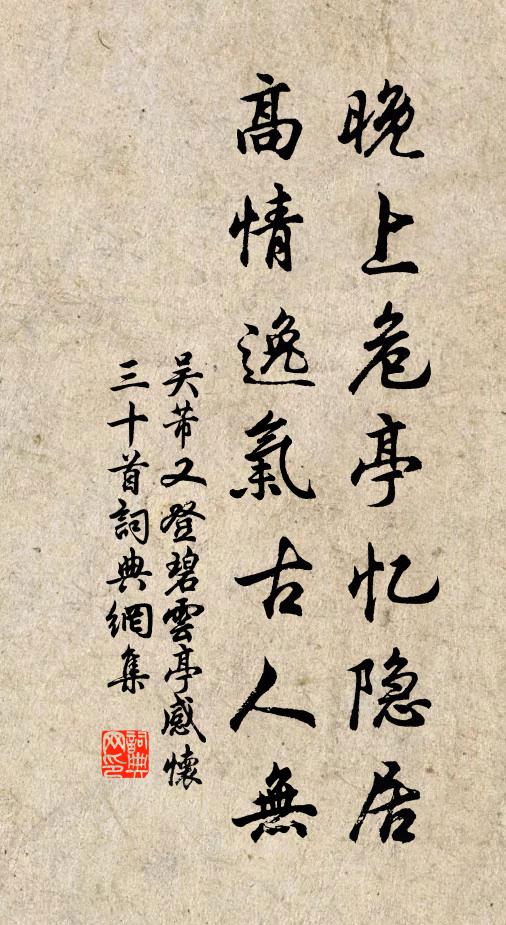 晚上危亭忆隐居
高情逸氣古人無
吴芾又登碧雲亭感懷
三十首詞典網集
詞典
网印